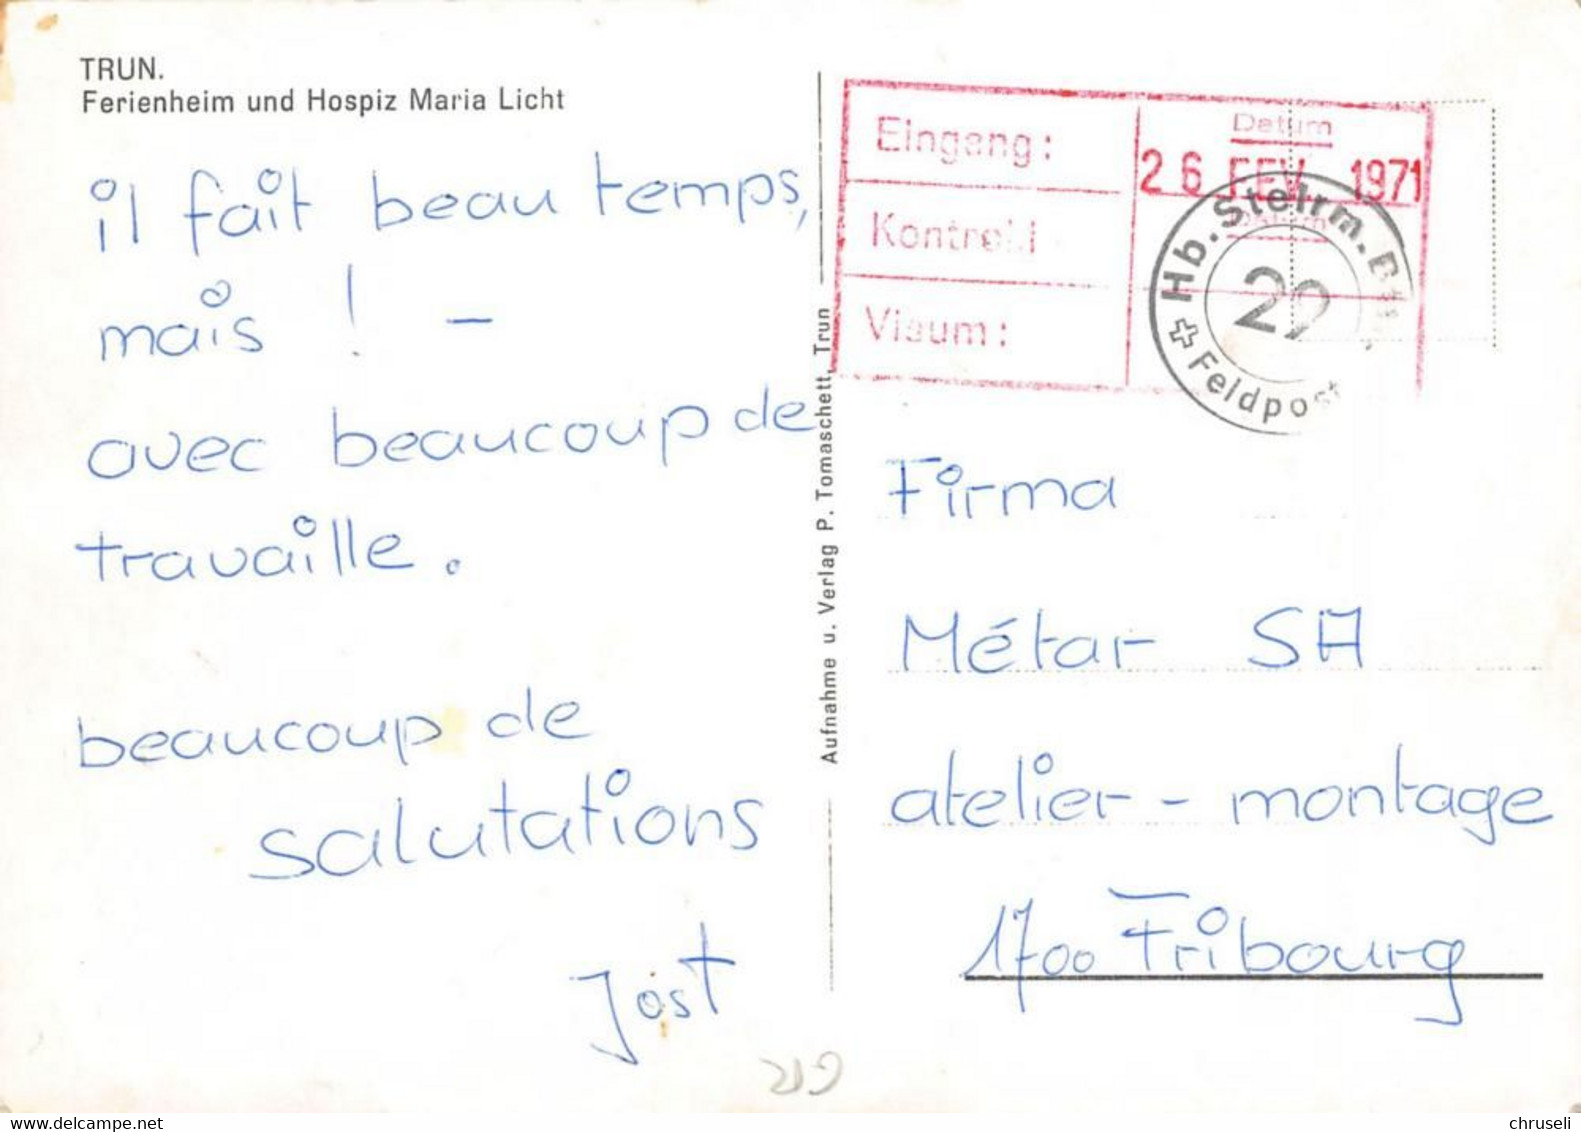 TRUN.
Ferienheim und Hospiz Maria Licht
il fait beau temps,
mais ! –
avec beaucoup de
travaille.
beaucoup de
salutations
Jost
Aufnahme u. Verlag P. Tomaschett, Trun
Eingang:
Datum
26 FEV. 1971
Kontroll
Datum
Visum:
Hb. Stelrm. Bttr.
29
Feldpost
Firma
Métar SA
atelier - montage
1700 Fribourg
https://www.delcampe.net
chruseli